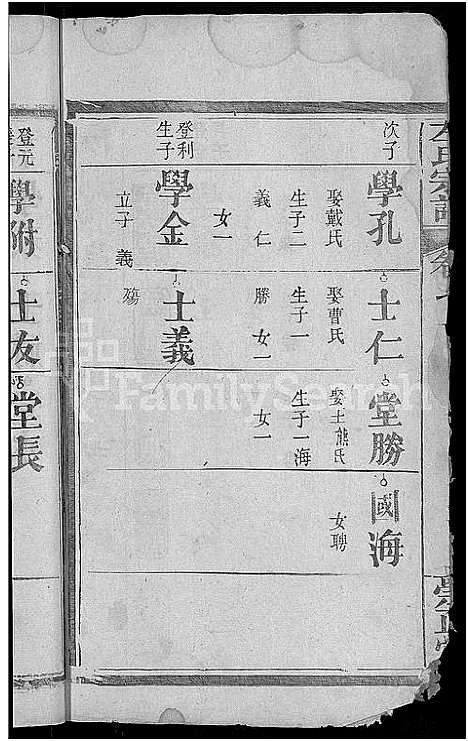 次子
學孔
娶戴氏
生子二
義仁
女一
登利
生子
學金
立子義
士仁
娶曹氏
生子一
勝女一
士義
殤
堂勝
娶王熊氏
生子一海
女一
國海
女聘
登元
學附
士友
堂長
氏宗譜
FamilySearch